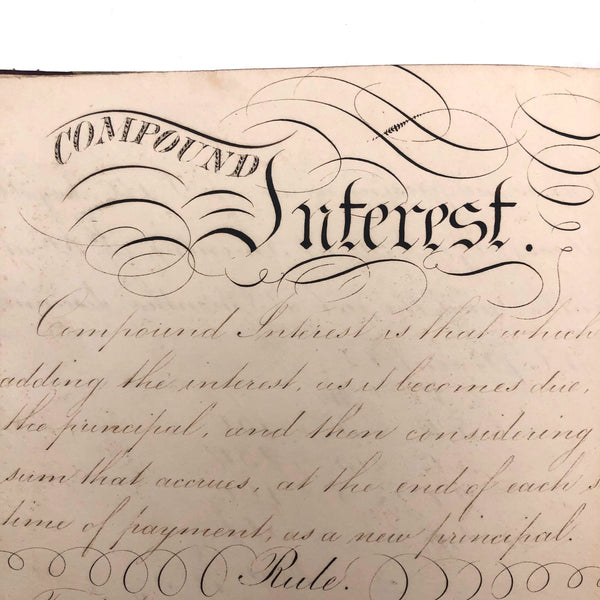 COMPOUND
Interest.
Compound Interest is that which
adding the interest, as it becomes due,
the principal, and then considering
sum that accrues, at the end of each
time of payment, as a new principal.
Rule.